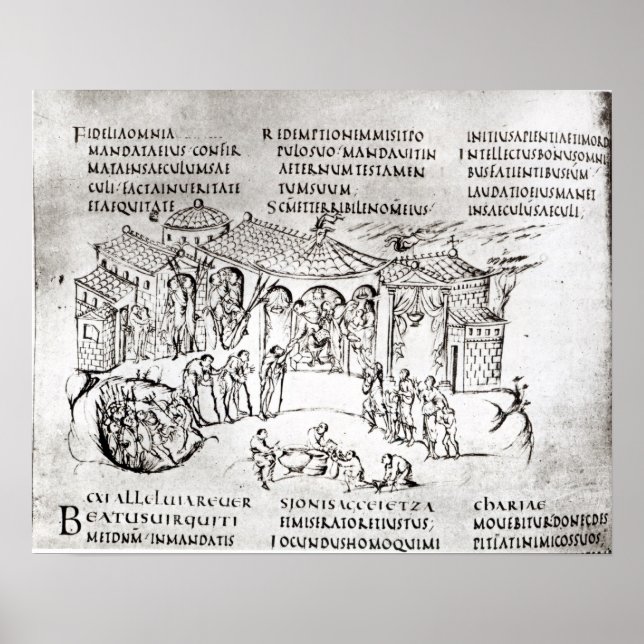 FIDELIAOMNIA
MANDATAEIUS·CONFIR
MATAINSAECULUMSAE
CULI·FACTAINUERITATE
ETAEQUITATE
REDEMPTIONEMMISITPO
PULOSUO·MANDAUITIN
AETERNUMTESTAMEN
TUMSUUM;
SCMETTERRIBILENOMEIUS·
INITIUSAPIENTIAETIMORD
INTELLECTUSBONUSOMNI
BUSFACIENTIBUSEUM·
LAUDATIOEIUSMANET
INSAECULUSAECULI;
CXI ALLELUIAREUER
BEATUSUIRQUITI
METDNM·INMANDATIS
SIONISAGGEIETZA
ETMISERATORETIUSTUS;
IOCUNDUSHOMOQUIMI
CHARIAE
MOUEBITUR·DONECDES
PICIATINIMICOSSUOS;